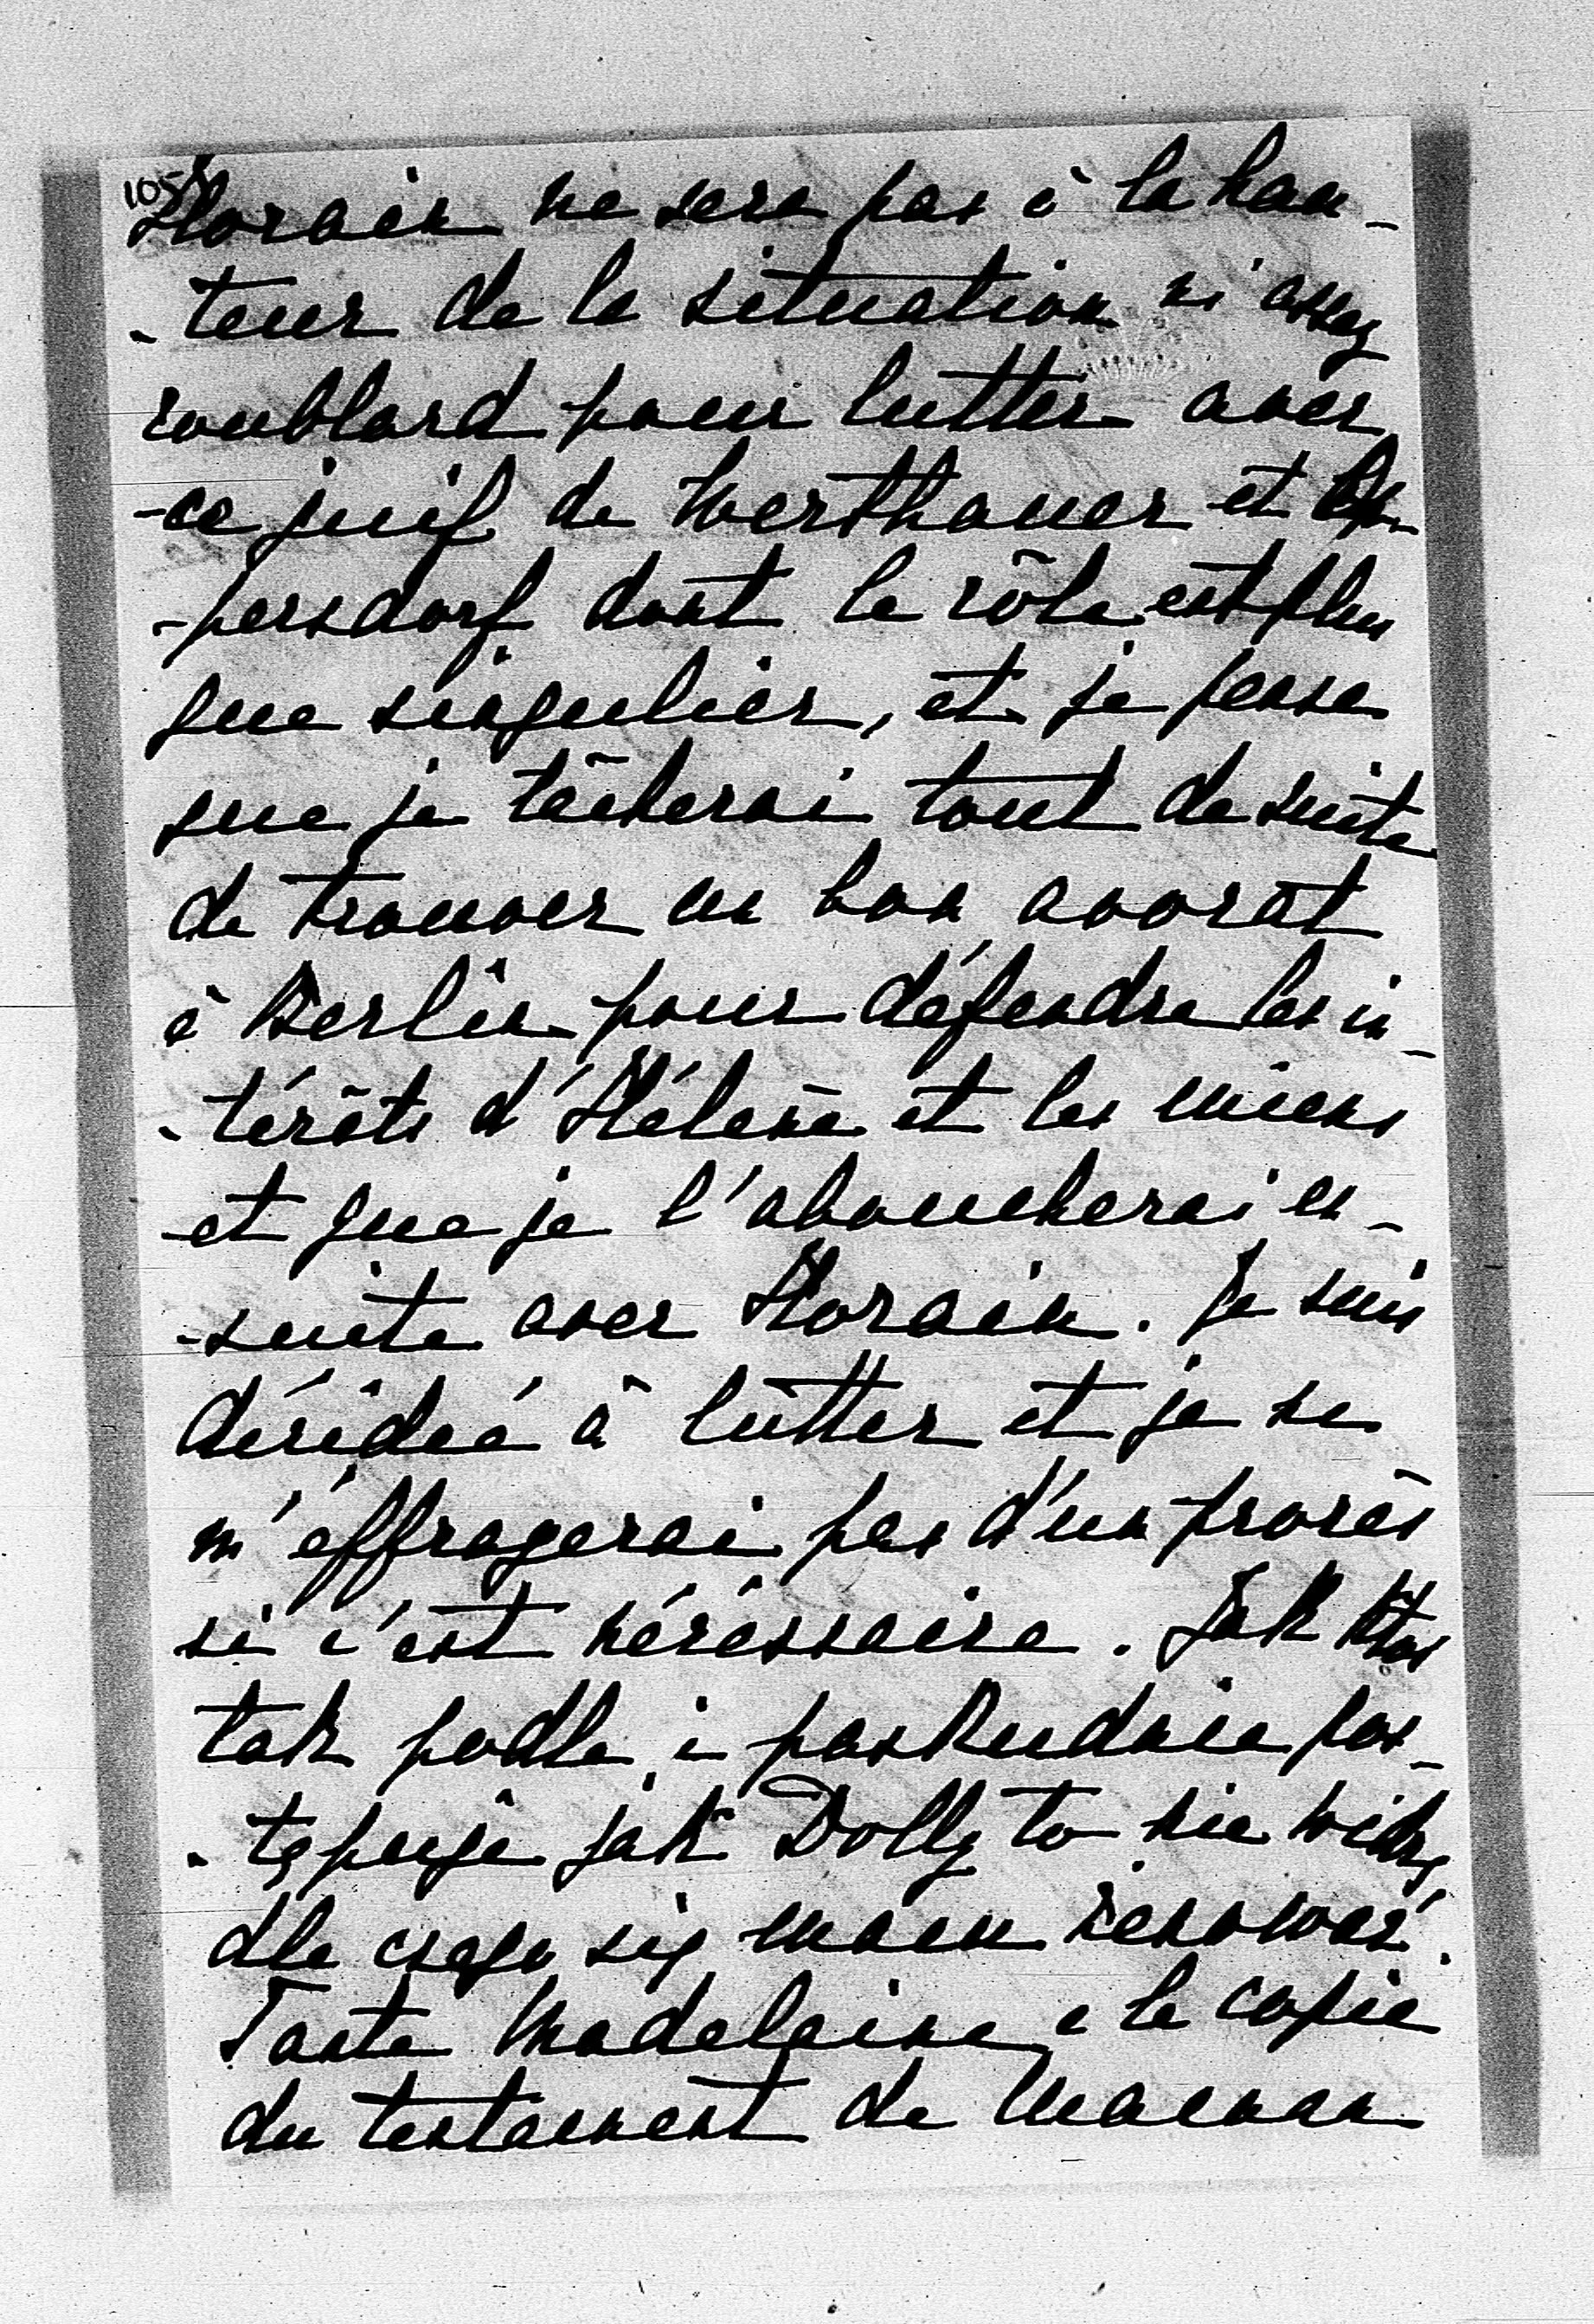 105
Horain ne sera pas à la hau-
-teur de la situation ni assez
roublard pour lutter avec
-ce juif de Werthauer et Op-
-persdorf dont le rôle est plus
que singulier, et je pense
que je tâcherai tout de suite
de trouver un bon avocat
à Berlin pour défendre les in-
-térêts d'Hélène et les miens
et que je l'aboucherai en-
-suite avec Horain. Je suis
décidée à lutter et je ne
m'effrayerai pas d'un procès
si c'est nécessaire. Jak ktoś
tak podle i paskudnie pos-
-tępuje jak Dolly to nie widzę
dla czego się mam żenować.
Tante Madeleine a la copie
du testament de Maman